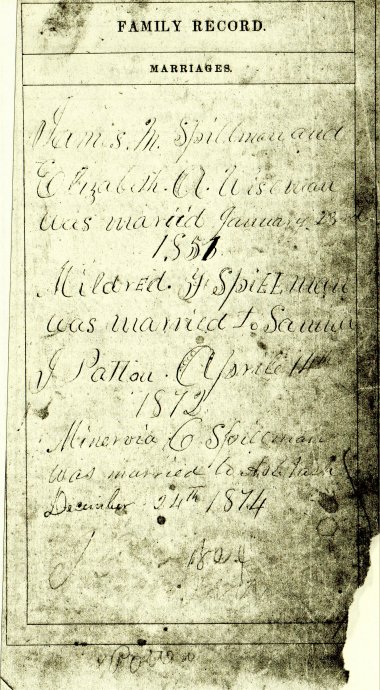 FAMILY RECORD.
MARRIAGES.
James. M. Spillman and
Elizabeth. A. Wiseman
was married January 23rd
1851
Mildred. F Spillman
was married to Samuel
J Patton. Aprile 14th
1872
Minervia C. Spillman
was married to
December 24th 1874